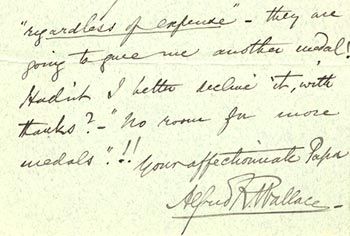 "regardless of expense" - they are
going to give me another medal!
Hadn't I better decline it, with
thanks? - "No room for more
medals"!!
Your affectionate Papa
Alfred R. Wallace.